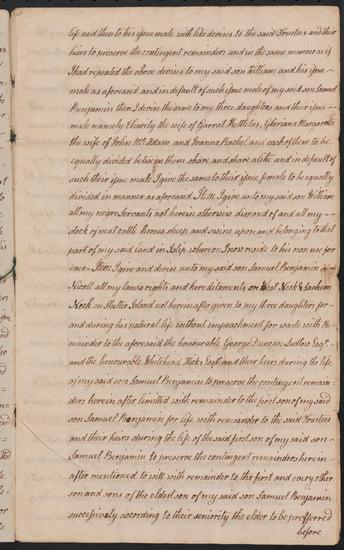 life and then to his issue male with like devises to the said Trustees and their
heirs to preserve the contingent remainders and in the same manner as if
I had repeated the above devises to my said son William and his issue
male as aforesaid and in default of such issue male of my said son Samuel
Benjamin then I devise the same to my three daughters and their issue
male namely Charity the wife of Garrat Kettletas, Gloriana Margaretta
the wife of John McAdam and Joanna Rachel and each of them to be
equally divided between them share and share alike and in default of
such their issue male I give the same to their issue female to be equally
divided in manner as aforesaid Item I give unto my said son William
all my negro Servants not herein otherwise disposed of and all my
stock of neat cattle horses sheep and swine upon and belonging to that
part of my said land in Islip whereon I now reside to his own use for
ever. Item I give and devise unto my said son Samuel Benjamin
Nicoll all my lands rights and hereditaments on West Neck & Sachem
Neck on Shelter Island not herein after given to my three daughters for
and during his natural life without impeachment for waste with re
mainder to the aforesaid the honourable George Duncan Ludlow Esqr.
and the honourable Whitehead Hicks Esqr. and their heirs during the life
of my said son Samuel Benjamin to preserve the contingent remain
ders herein after limitted with remainder to the first son of my said
son Samuel Benjamin for life with remainder to the said Trustees
and their heirs during the life of the said first son of my said son
Samuel Benjamin to preserve the contingent remainders herein
after mentioned to wit with remainder to the first and every other
son and sons of the eldest son of my said son Samuel Benjamin
successively according to their seniority the elder to be prefferred
before